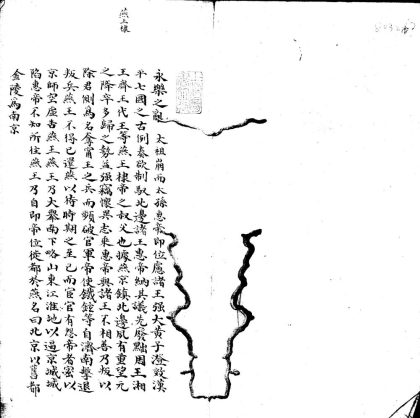 燕京樣
永樂之亂　太祖崩而太孫惠帝卽位慮諸王強大黃子澄效漢
平七國之古例奏欲制馭北邊諸王惠帝納其議先廢黜周王湘
王齊王代王等燕王棣帝之叔父也據燕京鎮北邊夙有重望元
之降卒多歸之勢益強竊懷異志東惠帝與諸王不相善乃叛以
除君側爲名奪甯王之兵而頻破官軍帝使鐵鉉等自濟南擊退
叛兵燕王不得已還燕以待時期之至已而宦官有怨帝者密以
京師空虛告燕王燕王乃大舉南下略山東江淮地以逼京城城
陷惠帝不知所往燕王乃自卽帝位徙都於燕名曰北京以舊都
金陵爲南京